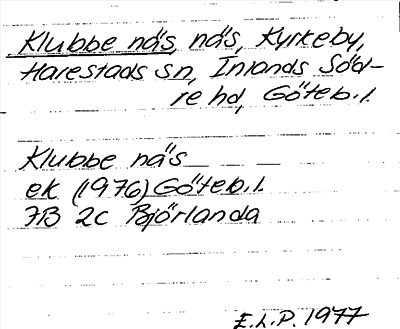 Klubbe näs, näs, Kyrkeby,
Harestads sn, Inlands Söd-
re hd, Göteb. l.
Klubbe näs
ek (1976) Göteb. l.
7B 2c Björlanda
E.L.P. 1977